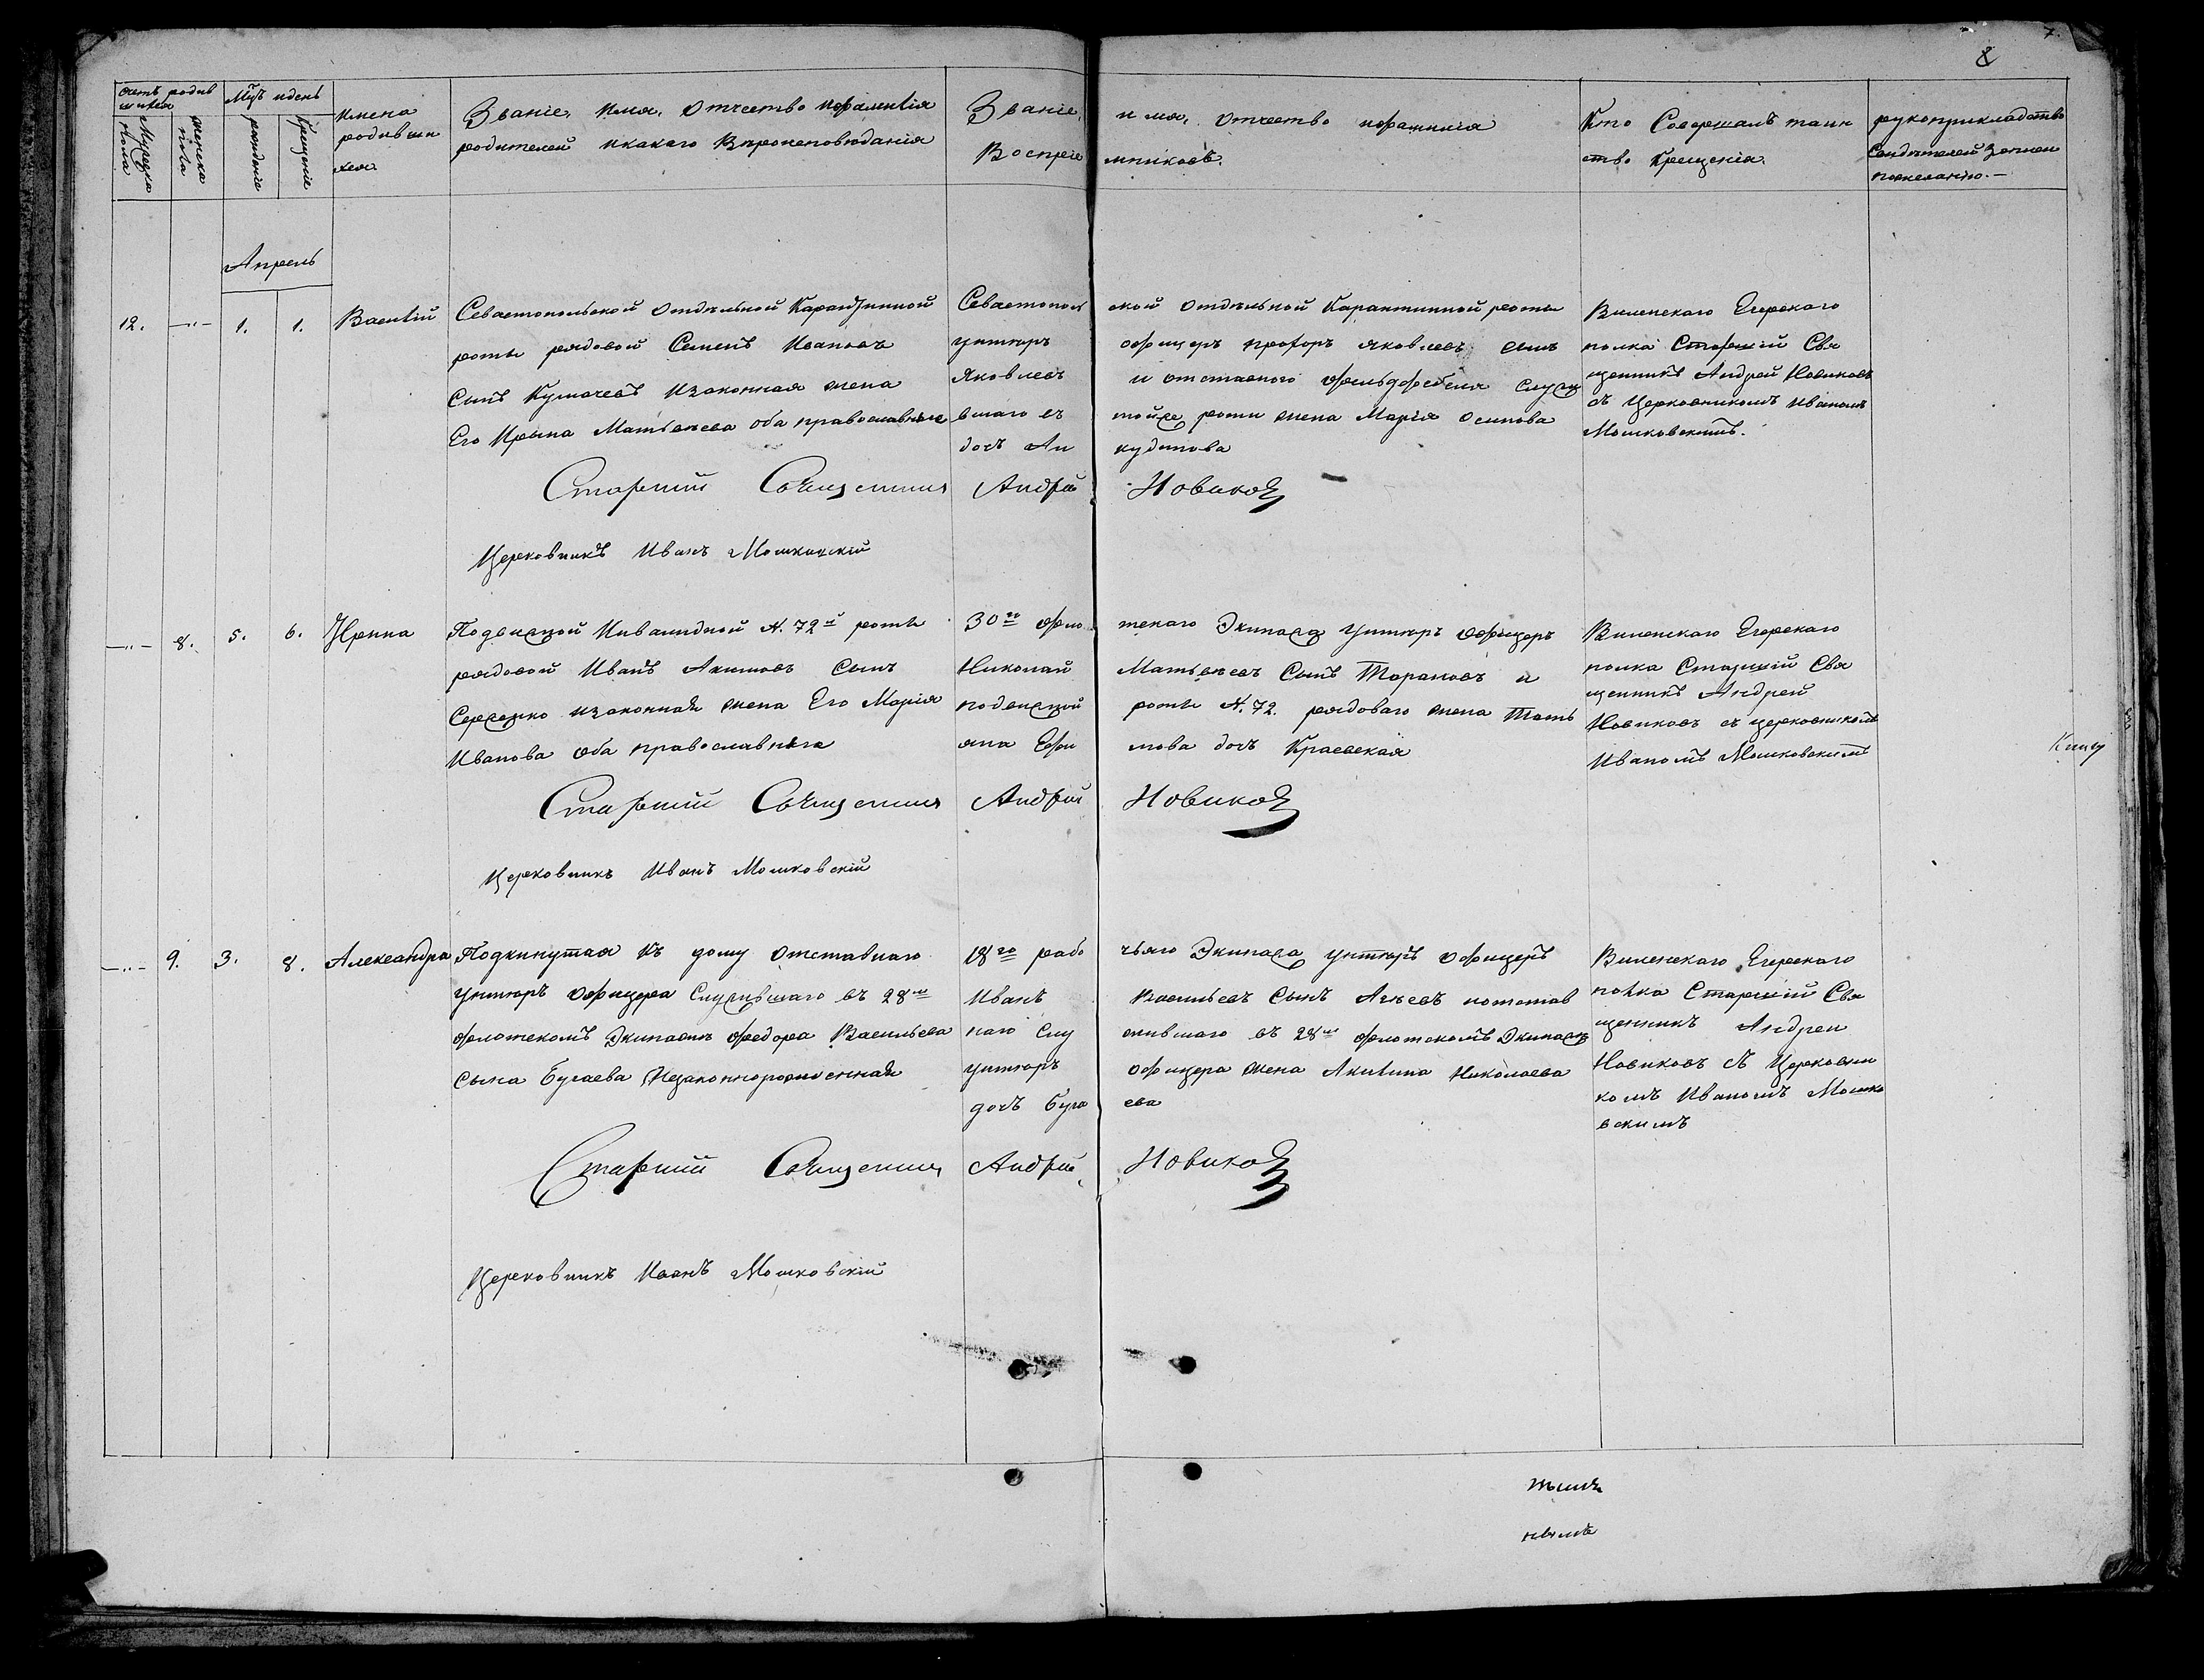 7.
8
Счетъ родив
шихся
Мужеска
пола
женска
пола
Мцъ и день
рожденіе
Крещеніе
Имена
родивши
хся
Званіе, Имя, Отчество и фамилія
родителей и какого Вѣроисповѣданія
Званіе, имя, Отчество и фамилія
Воспріемниковъ.
Кто Совершалъ таин
ство Крещенія.
рукоприкладство
Свидѣтелей записи
по желанію.
Апрель
12. —"— 1. 1. Василій
Севастопольской Отдѣльной Карантинной
роты рядовой Семенъ Ивановъ
Сынъ Кумачевъ и законная жена
Его Ирина Матвѣева оба православные
Севастопольской Отдѣльной Карантинной роты
унтеръ офицеръ Яковлевъ сынъ
и отставного фельдфебеля
вшаго въ той же роти жена Марія Осипова
дочь Анкудинова
Виленскаго Егерскаго
полка Старшій Свя
щенникъ Андрей Новиковъ
съ Церковникомъ Иваномъ
Мошковскимъ.
Старшій Священникъ Андрей Новиковъ
Церковникъ Иванъ Мошковскій
—"— 8. 5. 6. Ирина
Подвижной Инвалидной N. 72й роты
рядовой Иванъ Акимовъ Сынъ
и законная жена Его Марія
Иванова оба православныя
30го флотскаго Экипажа Унтеръ офицеръ
Николай Матвѣевъ Сынъ Тарановъ и
подвижной роты N. 72. рядоваго жена Тать
яна Ефимова дочь Краевская
Виленскаго Егерскаго
полка Старшій Свя
щенникъ Андрей
Новиковъ съ церковникомъ
Иваномъ Мошковскимъ
Старшій Священникъ Андрей Новиковъ
Церковникъ Иванъ Мошковскій
—"— 9. 3. 8. Александра
Подкинутая къ дому Отставнаго
Унтеръ Офицера Служившаго въ 28м
флотскомъ Экипажѣ Федора Васильева
Сына Бугаева Незаконнорожденная
18го рабочьяго Экипажа Унтеръ Офицеръ
Иванъ Васильевъ Сынъ Агѣевъ и отстав
наго Служившаго въ 28м флотскомъ Экипажѣ
унтеръ офицера жена Акилина Николаева
дочь Бугаева
Виленскаго Егерскаго
полка Старшій Свя
щенникъ Андреи
Новиковъ съ Церковни
комъ Иваномъ Мошко
вскимъ
Старшій Священникъ Андрей Новиковъ
Церковникъ Иванъ Мошковскій